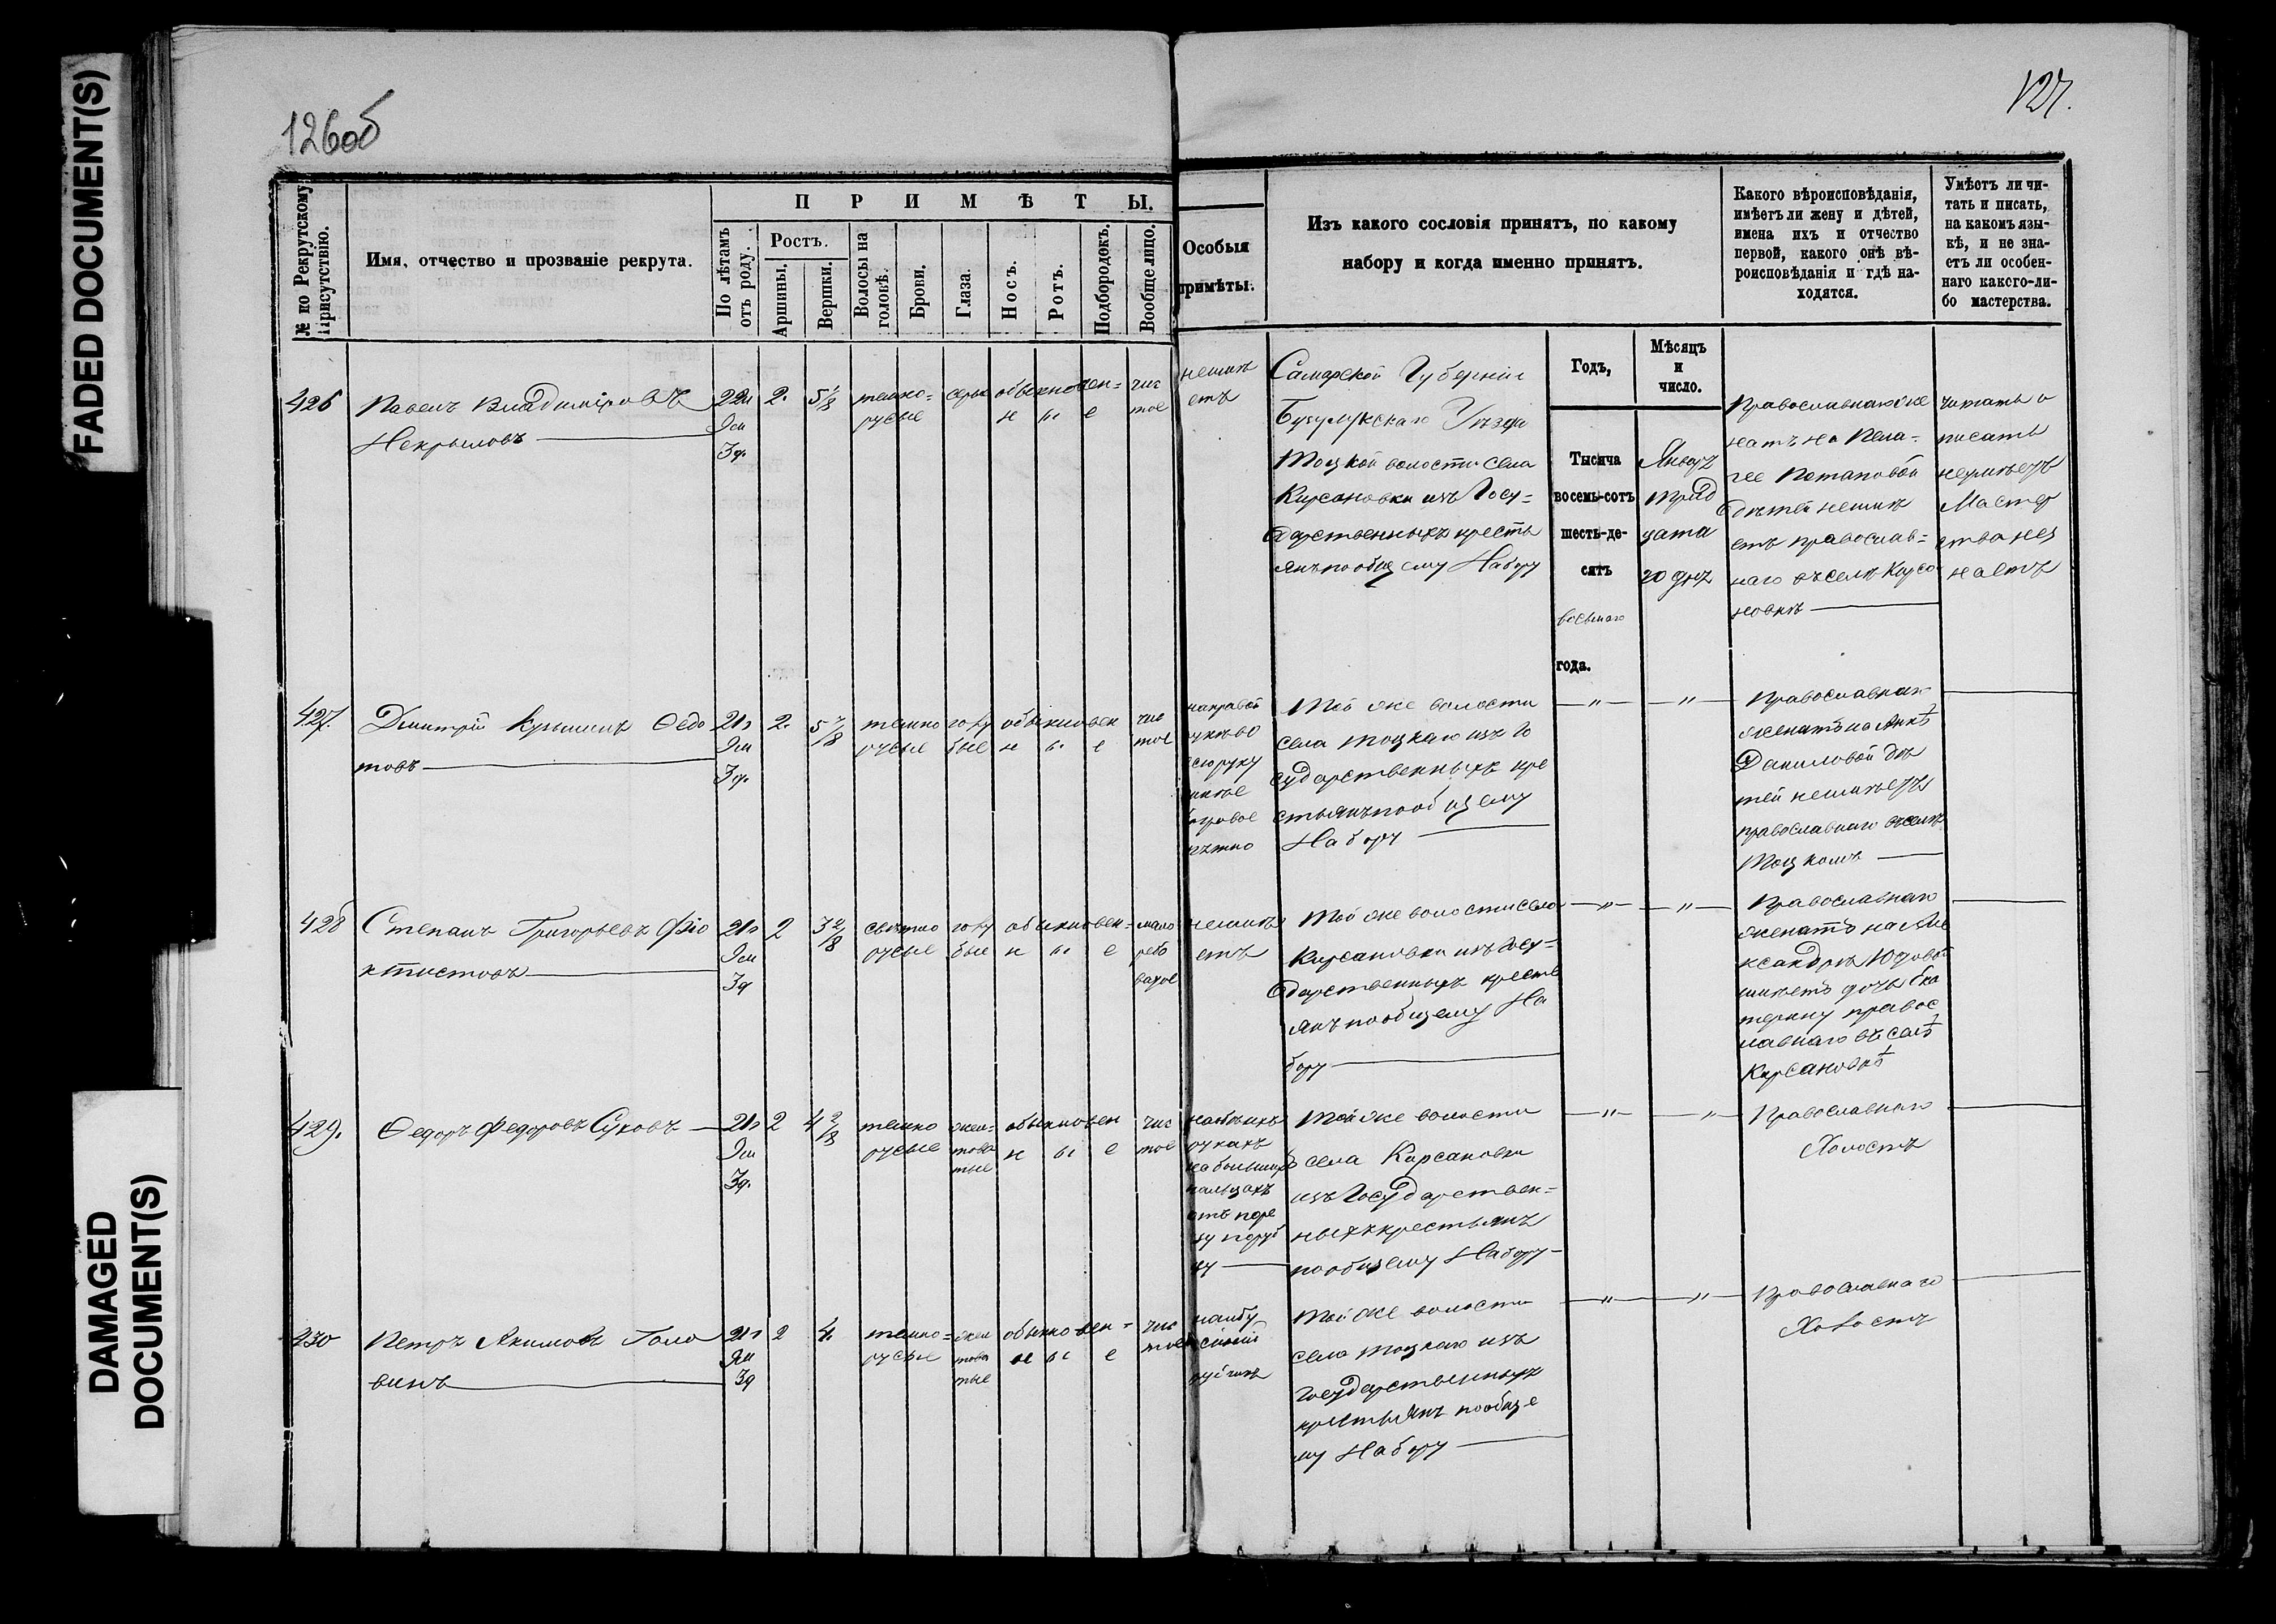 FADED DOCUMENT(S)
DAMAGED
DOCUMENT(S)
126об
127.
№ по Рекрутскому
Присутствію.
Имя, отчество и прозваніе рекрута.
ПРИМѢТЫ.
По лѣтамъ
отъ роду.
Ростъ.
Аршины.
Вершки.
Волосы на
головѣ.
Брови.
Глаза.
Носъ.
Ротъ.
Подбородокъ.
Вообще лицо.
Особыя
примѣты.
Изъ какого сословія принятъ, по какому
набору и когда именно принятъ.
Какого вѣроисповѣданія,
имѣетъ ли жену и дѣтей,
имена ихъ и отчество
первой, какого онѣ вѣ-
роисповѣданія и гдѣ на-
ходятся.
Умѣетъ ли чи-
тать и писать,
на какомъ язы-
кѣ, и не зна-
етъ ли особен-
наго какого-ли-
бо мастерства.
Годъ,
Мѣсяцъ
и
число.
426
Павелъ Владиміровъ
Некрыловъ
22л
9м
3д.
2.
5 1/8
темно-
русые
серые
обыкновен-
н ы е
чис
тое
неимѣ
етъ
Самарской Губерніи
Бузулукскаго Уѣзда
Тоцкой волости села
Кирсановки изъ Госу-
дарственныхъ кресть
янъ по общему Набору
Тысяча
восемь-сотъ
шесть-де-
сятъ
восьмаго
года.
Январ
трид
цата
го дня
Православнаго же
натъ на Пела-
гее Потаповой
дѣтей неимѣ
етъ православ-
наго въ селѣ Кирса
новкѣ
читать и
писать
неумѣетъ
Мастер
ства нез
наетъ
427.
Дмитрій Кузминъ Ѳедо
товъ
21л
9м
3д.
2.
5 2/8
темно
русые
голу
бые
обыкновен
н ы е
чис
тое
направой
родовое
пѣтно
Той же волости
села Тоцкаго изъ Го
сударственныхъ кре
стьянъ по общему
Набору
Православнаго
женатъ на Аннѣ
Даниловой дѣ
тей неимѣетъ
православнаго въ селѣ
Тоцкомъ
428
Степанъ Григорьевъ Фіо
ктистовъ
21л
9м
3д
2
3 2/8
свѣтло
русые
голу
бые
обыкновен-
н ы е
мало
рябо
ватое
неимѣ
етъ
Той же волости села
Кирсановки изъ Госу-
дарственныхъ кресть
янъ по общему На
бору
Православнаго
женатъ на Але
ксандрѣ
имѣетъ дочь Ека
терину правос
лавнаго въ селѣ
Кирсановкѣ
429.
Ѳедоръ Федоровъ Суковъ
21л
9м
3д.
2
4 2/8
темно
русые
жел-
това
тые
обыкновен
н ы е
чис
тое
на обѣихъ
рукахъ
на большихъ
пальцахъ
Той же волости
села Кирсановки
изъ Государствен-
ныхъ крестьянъ
по общему Набору
Православнаго
Холостъ
430
Петръ Акимовъ Голо
винъ
21л
9м
3д
2
4
темно-
русые
жел
това
тые
обыкновен-
н ы е
чис
тое
на лбу
рубчикъ
Той же волости
села Тоцкаго изъ
Государственныхъ
крестьянъ по обще
му Набору
Православнаго
Холостъ